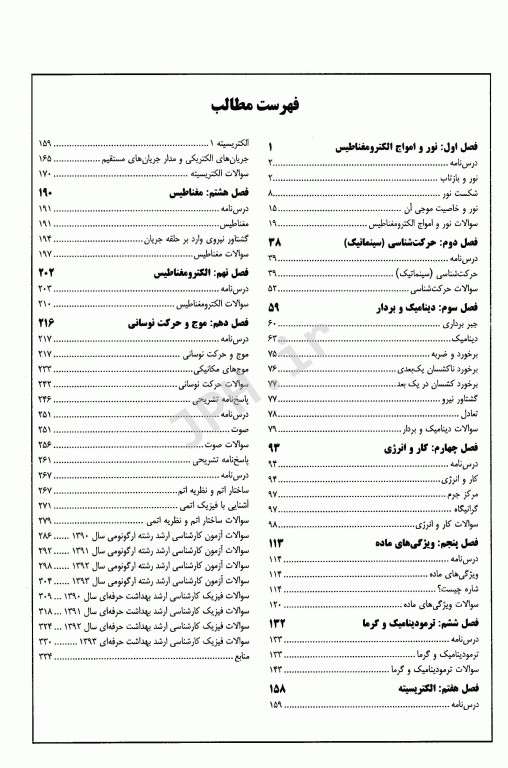 فهرست مطالب
فصل اول: نور و امواج الکترومغناطیس ۱
درس‌نامه ۲
نور و بازتاب ۲
شکست نور ۸
نور و خاصیت موجی آن ۱۵
سوالات نور و امواج الکترومغناطیس ۱۹
فصل دوم: حرکت‌شناسی (سینماتیک) ۳۸
درس‌نامه ۳۹
حرکت‌شناسی (سینماتیک) ۳۹
سوالات حرکت‌شناسی ۵۲
فصل سوم: دینامیک و بردار ۵۹
جبر برداری ۶۰
دینامیک ۶۳
برخورد و ضربه ۷۵
برخورد ناکشسان یک‌بعدی ۷۶
برخورد کشسان در یک بعد ۷۷
گشتاور نیرو ۷۷
تعادل ۷۸
سوالات دینامیک و بردار ۷۹
فصل چهارم: کار و انرژی ۹۳
درس‌نامه ۹۴
کار و انرژی ۹۴
مرکز جرم ۹۷
گرانیگاه ۹۷
سوالات کار و انرژی ۹۸
فصل پنجم: ویژگی‌های ماده ۱۱۳
درس‌نامه ۱۱۴
ویژگی‌های ماده ۱۱۴
شاره چیست؟ ۱۱۴
سوالات ویژگی‌های ماده ۱۲۰
فصل ششم: ترمودینامیک و گرما ۱۳۲
درس‌نامه ۱۳۳
ترمودینامیک و گرما ۱۳۳
سوالات ترمودینامیک و گرما ۱۴۳
فصل هفتم: الکتریسیته ۱۵۸
درس‌نامه ۱۵۹
الکتریسیته ۱ ۱۵۹
جریان‌های الکتریکی و مدار جریان‌های مستقیم ۱۶۵
سوالات الکتریسیته ۱۷۰
فصل هشتم: مغناطیس ۱۹۰
درس‌نامه ۱۹۱
مغناطیس ۱۹۱
گشتاور نیروی وارد بر حلقه جریان ۱۹۴
سوالات مغناطیس ۱۹۷
فصل نهم: الکترومغناطیس ۲۰۲
درس‌نامه ۲۰۳
سوالات الکترومغناطیس ۲۱۰
فصل دهم: موج و حرکت نوسانی ۲۱۶
درس‌نامه ۲۱۷
موج و حرکت نوسانی ۲۱۷
موج‌های مکانیکی ۲۳۳
سوالات حرکت نوسانی ۲۴۲
پاسخ‌نامه تشریحی ۲۴۶
درس‌نامه ۲۵۱
صوت ۲۵۱
سوالات صوت ۲۵۶
پاسخ‌نامه تشریحی ۲۶۱
درس‌نامه ۲۶۷
ساختار اتم و نظریه اتم ۲۶۷
آشنایی با فیزیک اتمی ۲۷۱
سوالات ساختار اتم و نظریه اتمی ۲۷۹
سوالات آزمون کارشناسی ارشد رشته ارگونومی سال ۱۳۹۰ ۲۸۶
سوالات آزمون کارشناسی ارشد رشته ارگونومی سال ۱۳۹۱ ۲۹۲
سوالات آزمون کارشناسی ارشد رشته ارگونومی سال ۱۳۹۲ ۲۹۸
سوالات آزمون کارشناسی ارشد رشته ارگونومی سال ۱۳۹۳ ۳۰۴
سوالات فیزیک کارشناسی ارشد بهداشت حرفه‌ای سال ۱۳۹۰ ۳۰۹
سوالات فیزیک کارشناسی ارشد بهداشت حرفه‌ای سال ۱۳۹۱ ۳۱۸
سوالات فیزیک کارشناسی ارشد بهداشت حرفه‌ای سال ۱۳۹۲ ۳۲۴
سوالات فیزیک کارشناسی ارشد بهداشت حرفه‌ای ۱۳۹۳ ۳۳۰
منابع ۳۳۴
JPH.ir